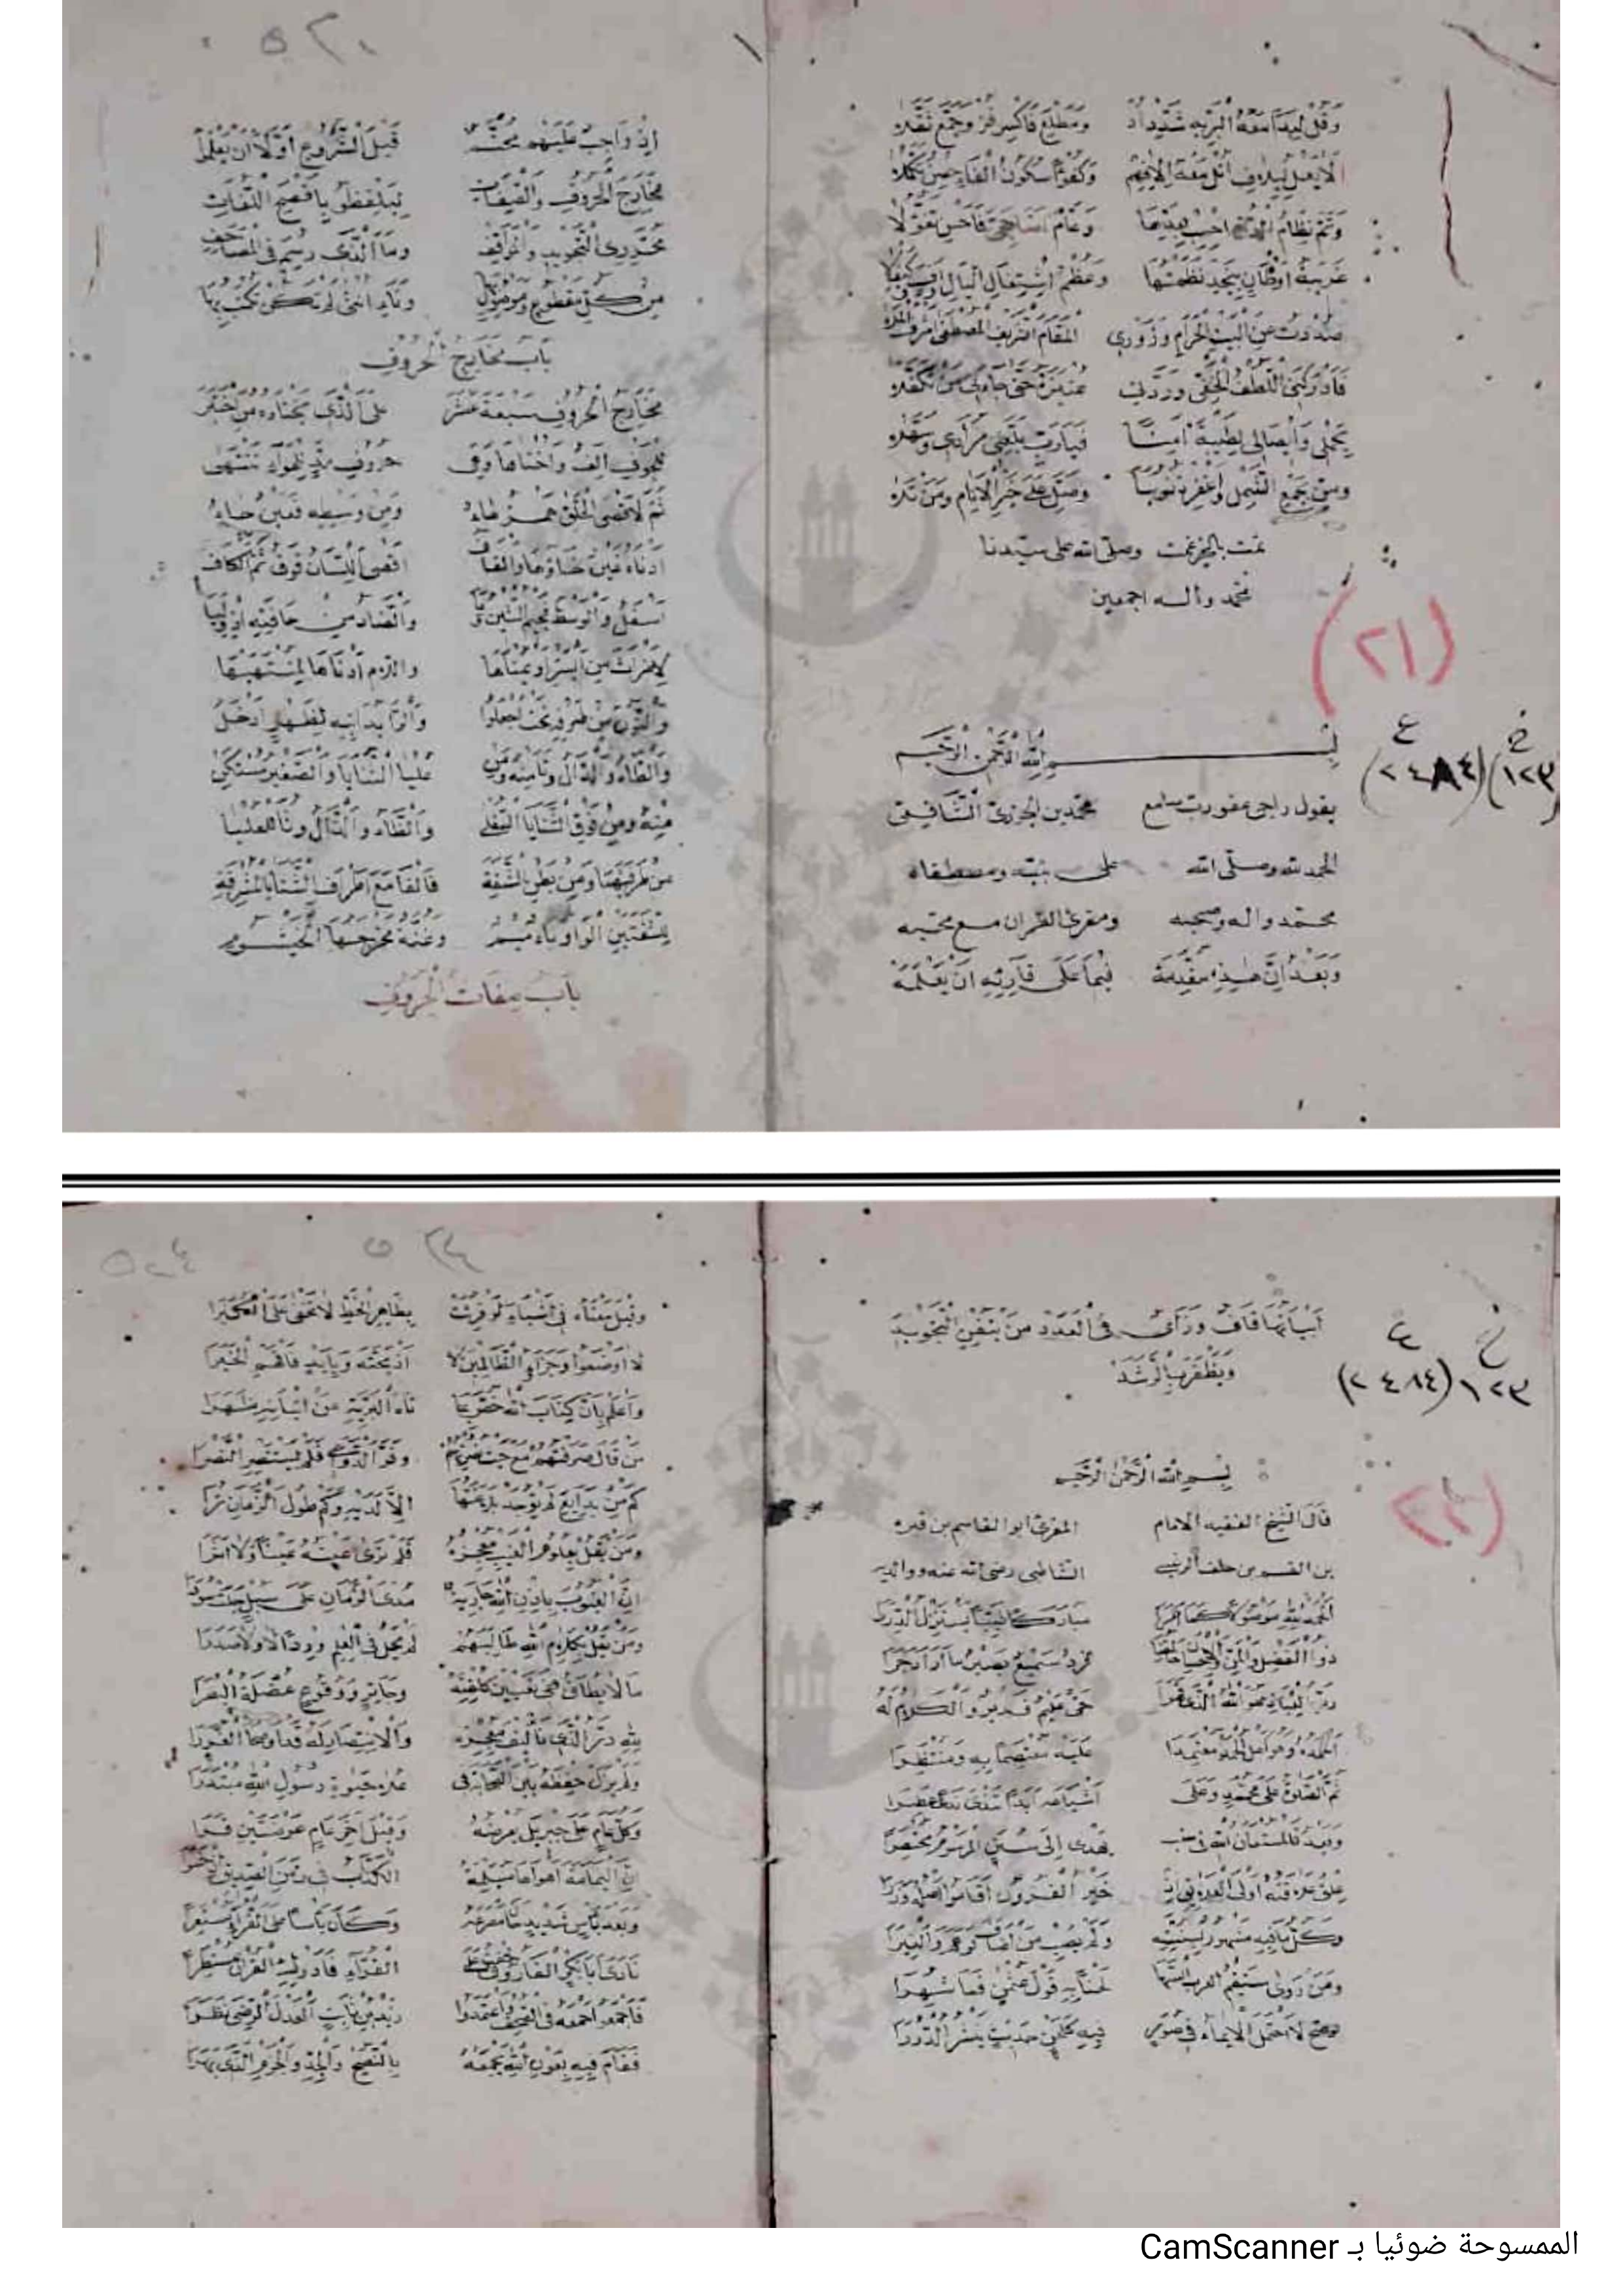 وقل ليبدا معه البريه شديد اد ومطلع فاكسر فز وجمع نقله
وكفوا سكون الفاء حصن تكملا
وتم نظام
غريبة اوطان بنجد نظمتها وعظم اشتغال البال
صددت عن البيت الحرام وزوري المقام الشريف المصطفى اشرف
فادركني اللطف الخفي وردني عنيزة حتى جاءني من تكفله
بحملي وايصالي لطيبة امنا فيارب بلغني مرادي وسهله
ومن بجمع الشمل واغفر ذنوبنا وصل على خير الانام ومن تلاه
تمت بالخير عمت وصلى الله على سيدنا
محمد واله اجمعين
(٢١)
بسم الله الرحمن الرحيم
خ ع
(١٢٣) (٢٤٨٤)
يقول راجي عفو رب سامع محمد بن الجزري الشافعي
الحمد لله وصلى الله على نبيه ومصطفاه
محمد واله وصحبه ومقرئ القران مع محبه
وبعد ان هذه مقدمة فيما على قارئه ان يعلمه
٥٢١
اذ واجب عليهم محتم قبل الشروع اولا ان يعلموا
مخارج الحروف والصفات ليلفظوا بافصح اللغات
محرري التجويد والمواقف وما الذي رسم في المصاحف
من كل مقطوع وموصول بها وتاء انثى لم تكن تكتب بها
باب مخارج الحروف
مخارج الحروف سبعة عشر على الذي يختاره من اختبر
للجوف الف واختاها وهي حروف مد للهواء تنتهي
ثم لاقصى الحلق همز هاء ومن وسطه فعين حاء
ادناه غين خاؤها والقاف اقصى اللسان فوق ثم الكاف
اسفل والوسط فجيم الشين يا والضاد من حافته اذ وليا
لاضراس من ايسر او يمناها واللام ادناها لمنتهاها
والنون من طرفه تحت اجعلوا والرا يدانيه لظهر ادخل
والطاء والدال وتا منه ومن عليا الثنايا والصفير مستكن
منه ومن فوق الثنايا السفلى والظاء والذال وثا للعليا
من طرفيهما ومن بطن الشفة فالفا مع اطراف الثنايا المشرفة
للشفتين الواو باء ميم وغنة مخرجها الخيشوم
باب صفات الحروف
ابياتها قاف وزاي في العدد من يتقن التجويد
ويظفر بالرشد
خ ع
١٢٣ (٢٤٨٤)
بسم الله الرحمن الرحيم
(٢٢)
قال الشيخ الفقيه الامام المقرئ ابو القاسم بن فيره
بن القسم بن خلف الرعيني الشاطبي رضي الله عنه ووالديه
الحمد لله موصولا كما امرا مباركا طيبا يستنزل الدررا
ذو الفضل والمن والاحسان خالقنا فرد سميع بصير ما اراد جرا
حي عليم قدير والكلام له
احمده وهو اهل الحمد معتمدا عليه معتصما به ومنتصرا
ثم الصلاة على محمد وعلى اشياعه ابدا تندى ندا عطرا
وبعد فالمستعان الله في سبب يهدى الى سنن المرسوم مختصرا
علق علاقته اولى العلائق اذ خير القرون اقاموا اصله وزرا
وكل ما فيه مشهور بسنته ولم يصب من اضاف الوهم والغيرا
ومن روى ستقيم العرب السنها لحنا به قول عثمن فما شهرا
لوصح لاحتمل الايماء في صور فيه كلحن حديث ينثر الدررا
٥٢٤ ٥٢٣
وقيل معناه في اشياء لو قرئت بظاهر الخط لا تخفى على الكبرا
لا اوضعوا وجزاؤا الظالمين لا اذبحنه وبايد فافهم الخبرا
واعلم بان كتاب الله خص بما تاه البرية عن اتيانه ظهرا
من قال صرفتهم مع حث نصرتهم وفر الدواعي فلم يستنصر النصرا
كم من بدايع لم توجد بلاغتها الا لديه وكم طول الزمان ترا
ومن يقل بعلوم الغيب معجزه فلم ترى عينه عينا ولا اثرا
ان الغيوب باذن الله جارية مدى الزمان على سبل جلت سورا
ومن يقل بكلام الله طالبهم لم يحل في العلم وردا لا ولا صدرا
ما لا يطاق ففي تعيين كلفته وجايز ووقوع عضلة البصرا
لله در الذي تاليف معجزه والانتصار له قد اوضحا الغررا
ولم يزل حفظه بين الصحابة في علا حيوة رسول الله مبتدرا
وكل عام على جبريل يعرضه وقيل اخر عام عرضتين قرا
ان اليمامة اهواها مسيلمة الكذاب في زمن الصديق اذ خسرا
وبعد باس شديد حان مصرعه وكان باسا على القراء مستعرا
نادى ابا بكر الفاروق خفت على القراء فادرك القران مستطرا
فاجمعوا جمعه في الصحف واعتمدوا زيد بن ثابت العدل الرضى نظرا
فقام فيه بعون الله يجمعه بالنصح والجد والحزم الذي بهرا
الممسوحة ضوئيا بـ CamScanner